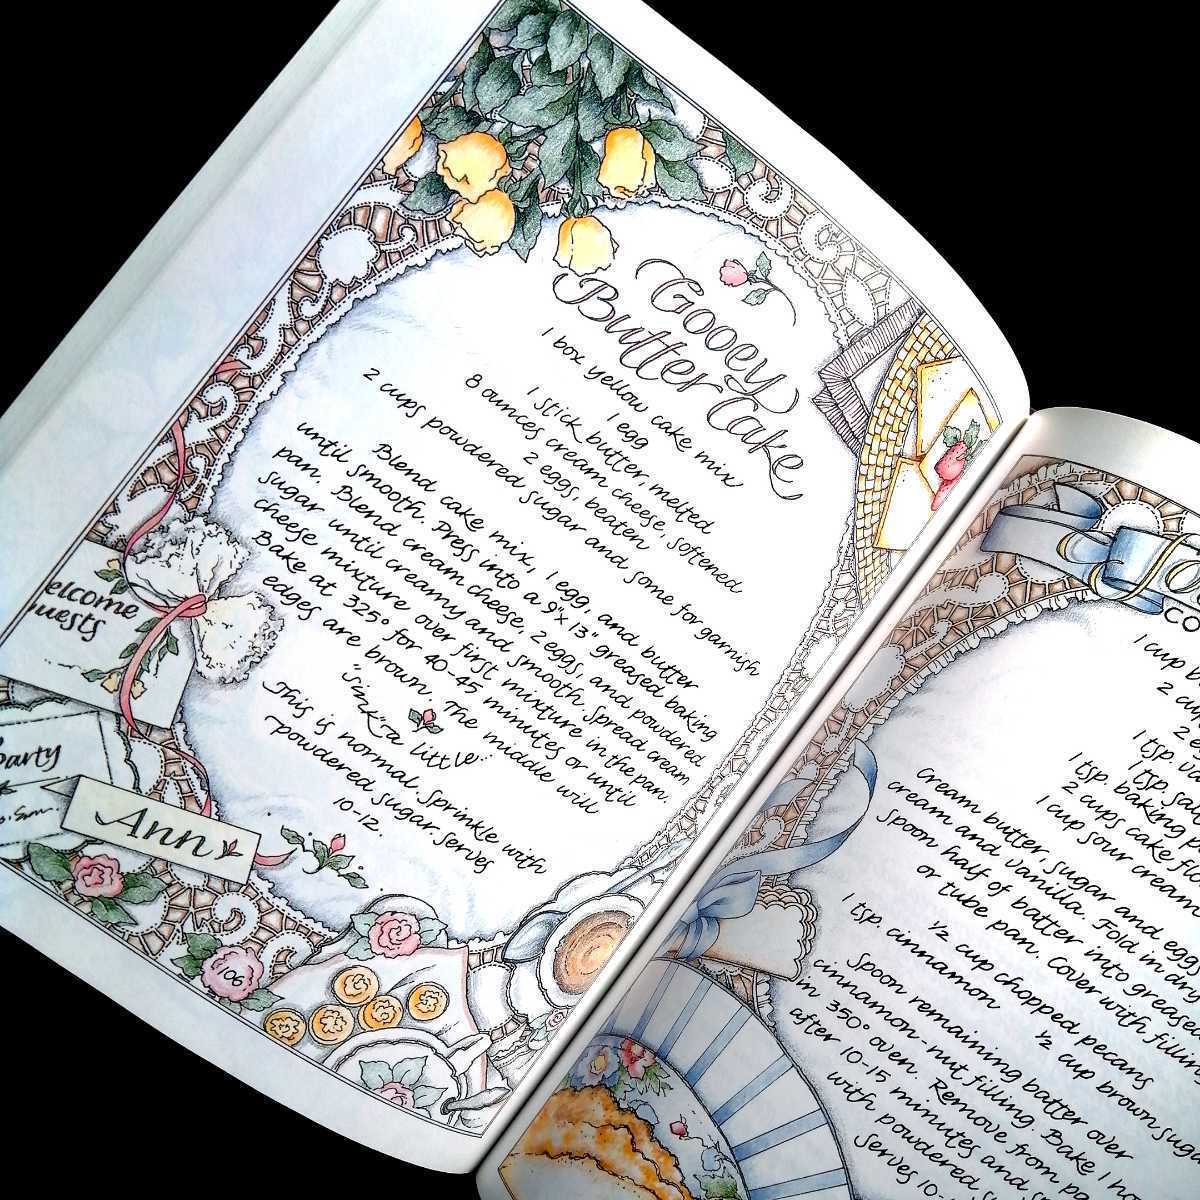 Gooey
Butter Cake
1 box yellow cake mix
1 egg
1 stick butter, melted
8 ounces cream cheese, softened
2 eggs, beaten
2 cups powdered sugar and some for garnish
Blend cake mix, 1 egg, and butter
until smooth. Press into a 9"x 13" greased baking
pan. Blend cream cheese, 2 eggs, and powdered
sugar until creamy and smooth. Spread cream
cheese mixture over first mixture in the pan.
Bake at 325° for 40-45 minutes or until
edges are brown. The middle will
"sink" a little.
This is normal. Sprinkle with
powdered sugar. Serves
10-12.
elcome
uests
Party
Ann
106
Co
1 cup b
2 cu
2 e
1 tsp. va
1 tsp. sal
1 tsp. baking p
2 cups cake flo
1 cup sour cream
Cream butter, sugar and egg
cream and vanilla. Fold in dry
Spoon half of batter into greased
or tube pan. Cover with filling
½ cup chopped pecans
1 tsp. cinnamon ½ cup brown suga
Spoon remaining batter over
cinnamon-nut filling. Bake 1 h
in 350° oven. Remove from pa
after 10-15 minutes and s
with powdered s
Serves 10-